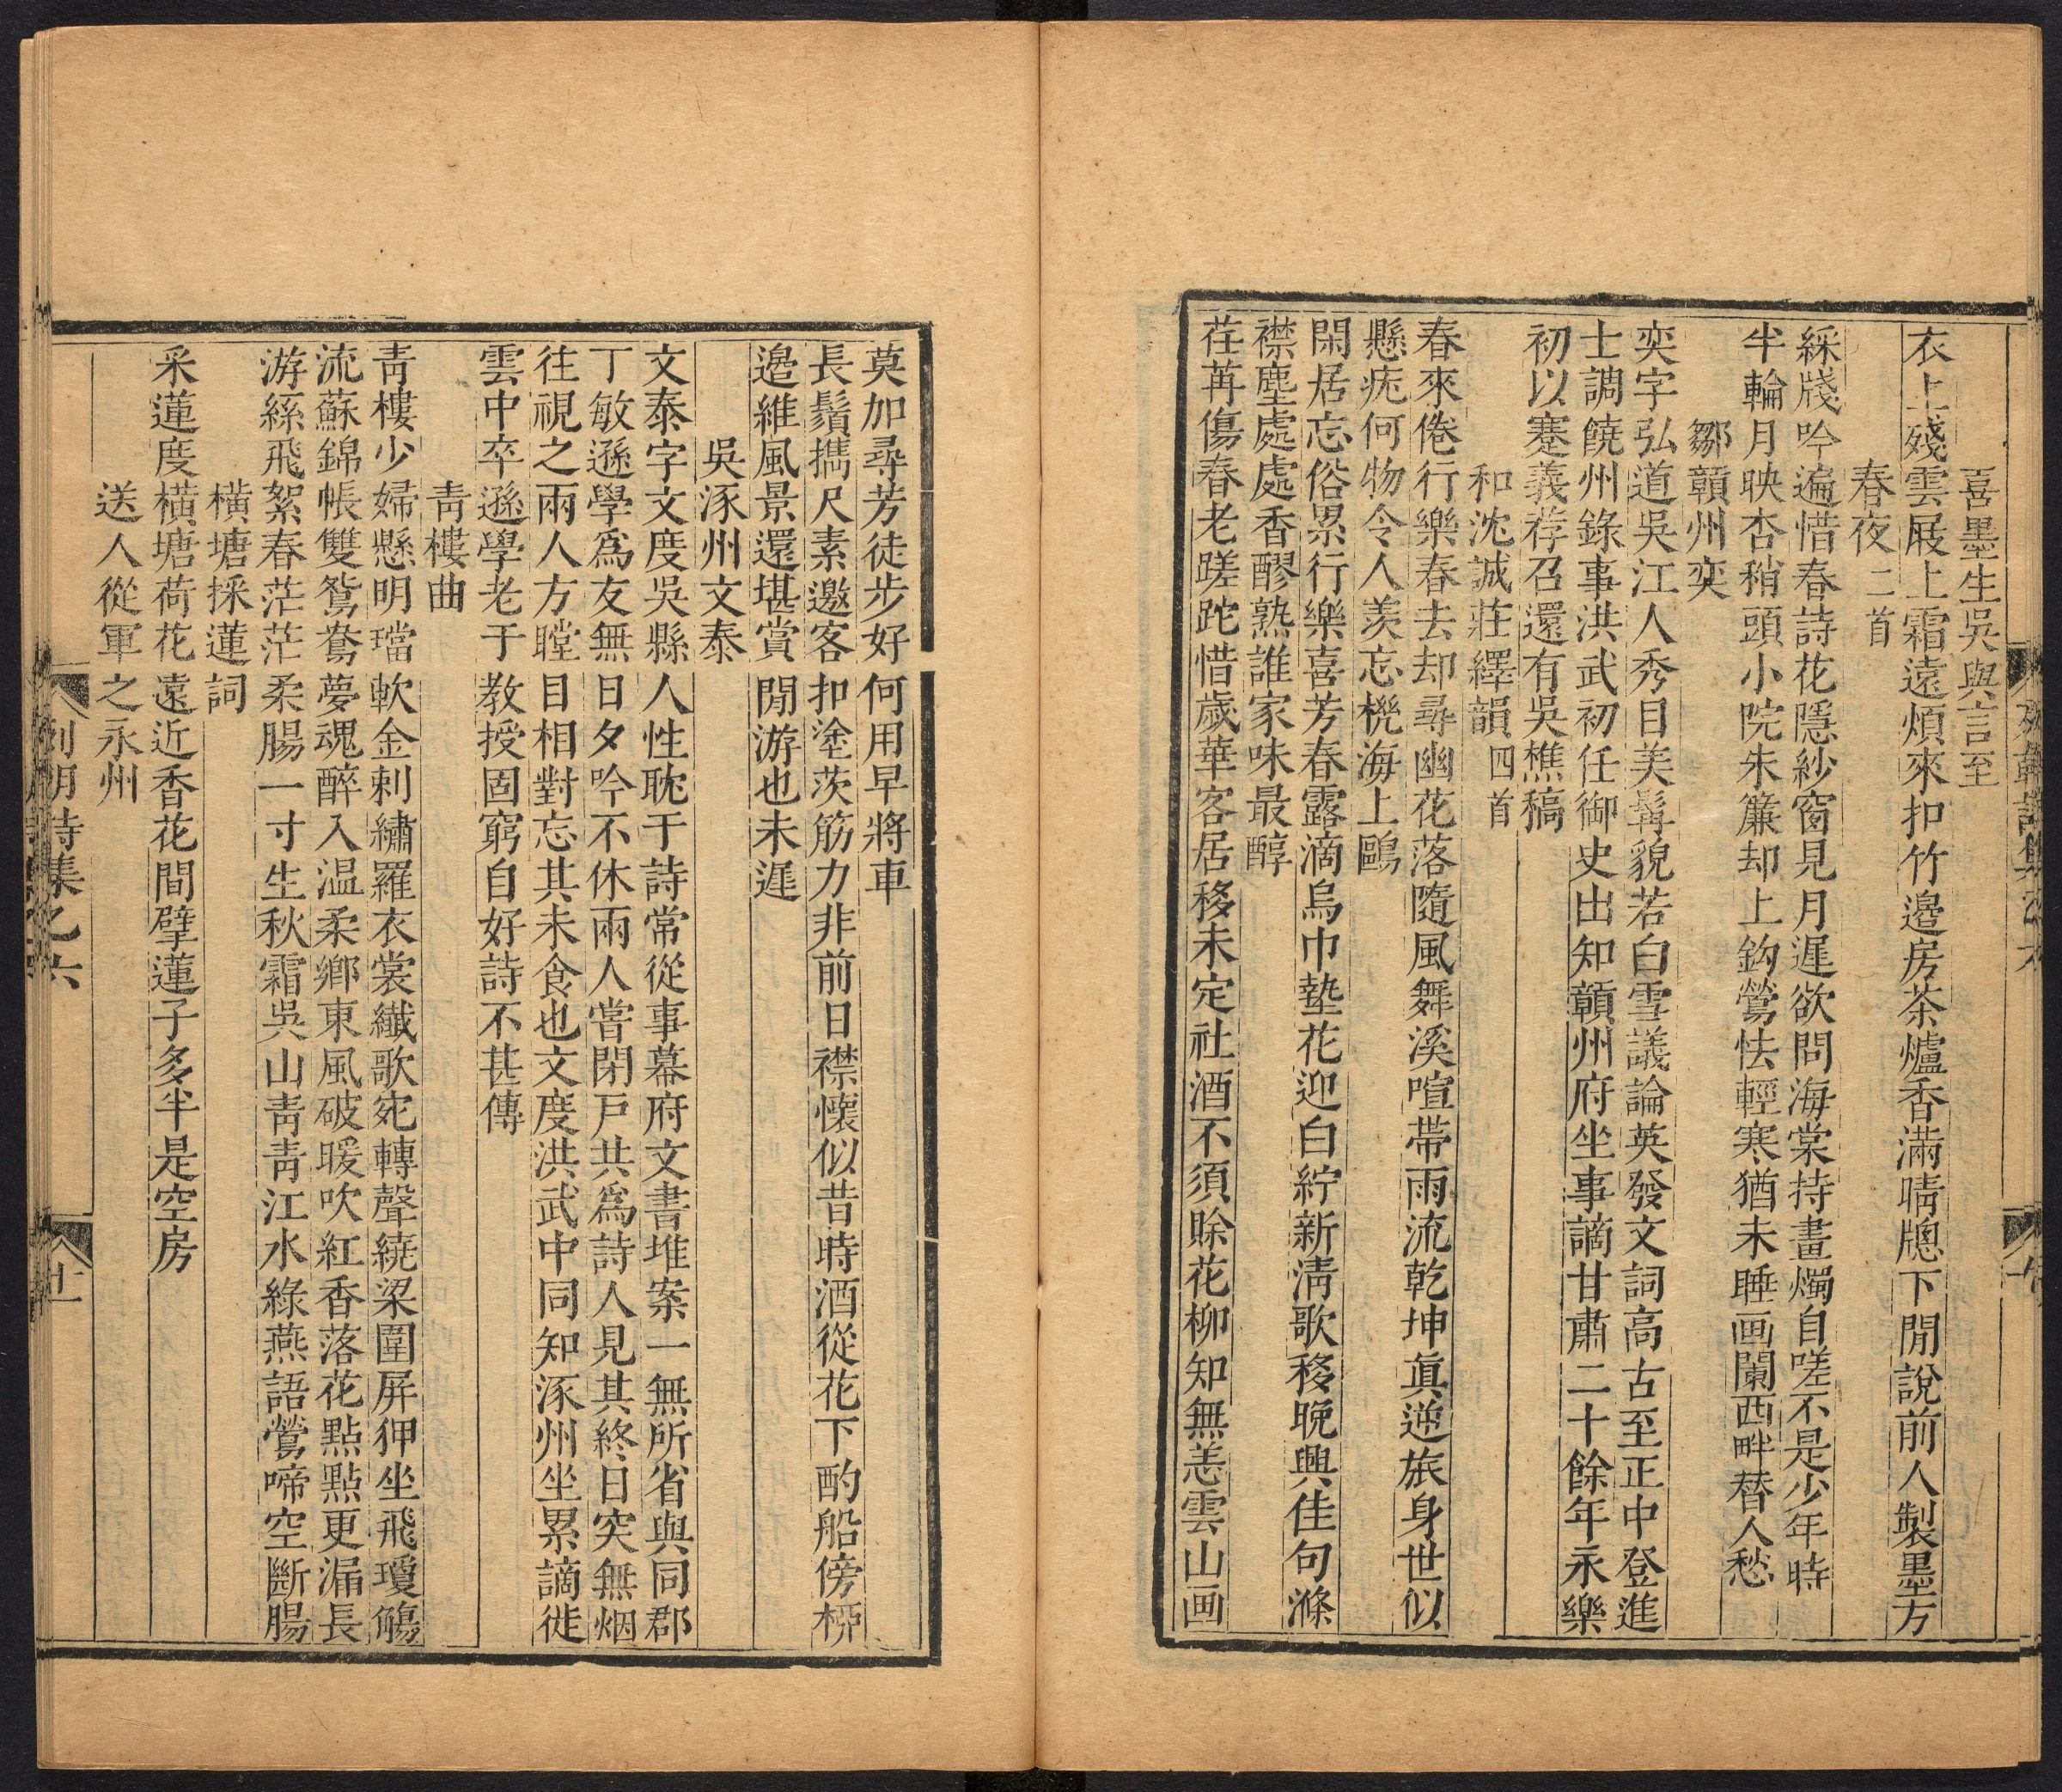 喜墨生吳與言至
衣上殘雲屐上霜遠煩來扣竹邉房茶爐香滿晴牕下閒說前人製墨方
春夜二首
綵牋吟遍惜春詩花隱紗窗見月遲欲問海棠持畫燭自嗟不是少年時
半輪月映杏稍頭小院朱簾却上鈎鶯怯輕寒猶未睡画闌西畔替人愁
鄒贑州奕
奕字弘道吳江人秀目美髯貌若白雪議論英發文詞高古至正中登進
士調饒州錄事洪武初任御史出知贑州府坐事謫甘肅二十餘年永樂
初以蹇義荐召還有吳樵稿
和沈誠莊繹韻四首
春來倦行樂春去却尋幽花落隨風舞溪喧帶雨流乾坤眞逆旅身世似
懸疣何物令人羡忘機海上鷗
閑居忘俗累行樂喜芳春露滴烏巾墊花迎白紵新淸歌移晚興佳句滌
襟塵處處香醪熟誰家味最醇
荏苒傷春老蹉跎惜歲華客居移未定社酒不須賖花柳知無恙雲山画
莫加尋芳徒步好何用早將車
長鬚攜尺素邀客扣塗茨筋力非前日襟懷似昔時酒從花下酌船傍栁
邉維風景還堪賞閒游也未遲
吳涿州文泰
文泰字文度吳縣人性耽于詩常從事幕府文書堆案一無所省與同郡
丁敏遜學爲友無日夕吟不休兩人嘗閉戸共爲詩人見其終日突無烟
往視之兩人方瞠目相對忘其未食也文度洪武中同知涿州坐累謫徙
雲中卒遜學老于教授固窮自好詩不甚傳
靑樓曲
靑樓少婦懸明璫軟金剌繡羅衣裳纖歌宛轉聲繞梁圍屏狎坐飛瓊觴
流蘇錦帳雙鴛鴦夢魂醉入温柔鄉東風破暖吹紅香落花點點更漏長
游絲飛絮春茫茫柔腸一寸生秋霜吳山靑靑江水綠燕語鶯啼空斷腸
橫塘採蓮詞
采蓮度橫塘荷花遠近香花間擘蓮子多半是空房
送人從軍之永州
列朝詩集乙六
廿一